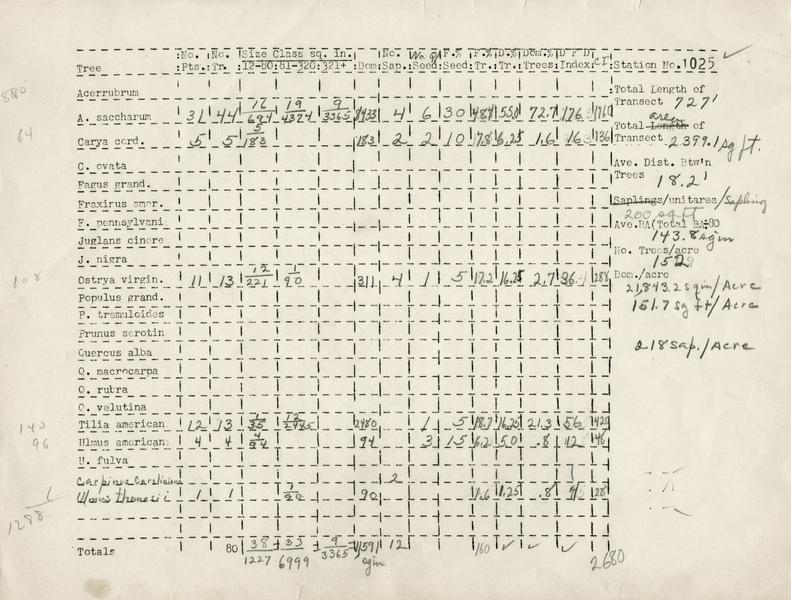 No. No. Size Class sq. in. No. No. of F.% F.% D.% Dom.% D F D C.I. Station No. 1025
Tree Pts. Tr. 12-80 81-320 321+ Dom Sap. Seed Seed Tr. Tr. Trees Index
Acerrubrum Total Length of
Transect 727'
880
16 19 9
A. saccharum 31 44 694 4324 3365 8433 4 6 30 48.4 55.0 72.7 176
64
Total Length area of
Transect 2399.1 sq ft.
5
Carya cord. 5 5 183 183 2 2 10 7.8 6.25 1.6 16 136
C. ovata Ave. Dist. Btw'n
Fagus grand. Trees 18.2'
Fraxirus amer. Saplings/unitarea/Sapling
200 sq ft
F. pennsylvani Ave.BA(Total BA÷80
Juglans cinere 143.8 sqin
J. nigra No. Trees/acre
152
12 1
Ostrya virgin. 11 13 221 90 311 4 1 5 17.2 16.25 2.7 36 288 Dom./acre
108
21,843.2 sqin/Acre
Populus grand. 151.7 sq ft/Acre
P. tremuloides
Prunus serotin
Quercus alba 218 sap./Acre
Q. macrocarpa
Q. rubra
Q. velutina
1 12
Tilia american 12 13 35 2445 2480 1 5 18.7 16.25 21.3 56 429
140
4
Ulmus american 4 4 94 94 3 15 6.2 5.0 .8 12 146
96
U. fulva
Carpinus Caroliniana 2
1
Ulmus thomasii 1 1 90 90 1.6 1.25 .8 28
1
1288
38 33 9
Totals 80 1227 + 6999 + 3365 11591 sqin 12 160
2680